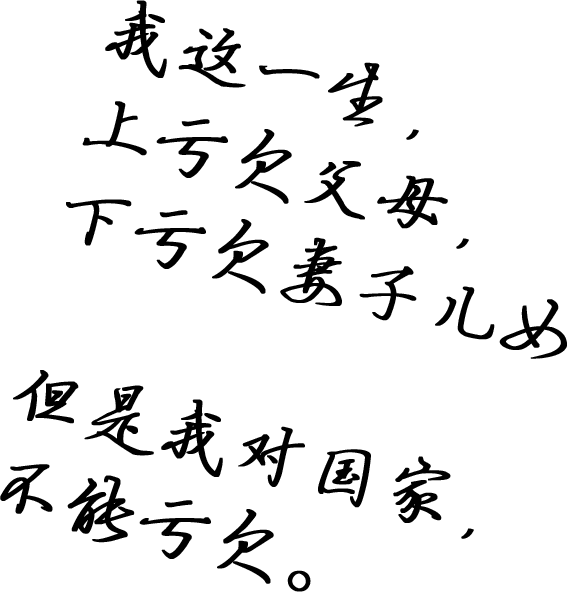 我这一生，
上亏欠父母，
下亏欠妻子儿女
但是我对国家，
不能亏欠。